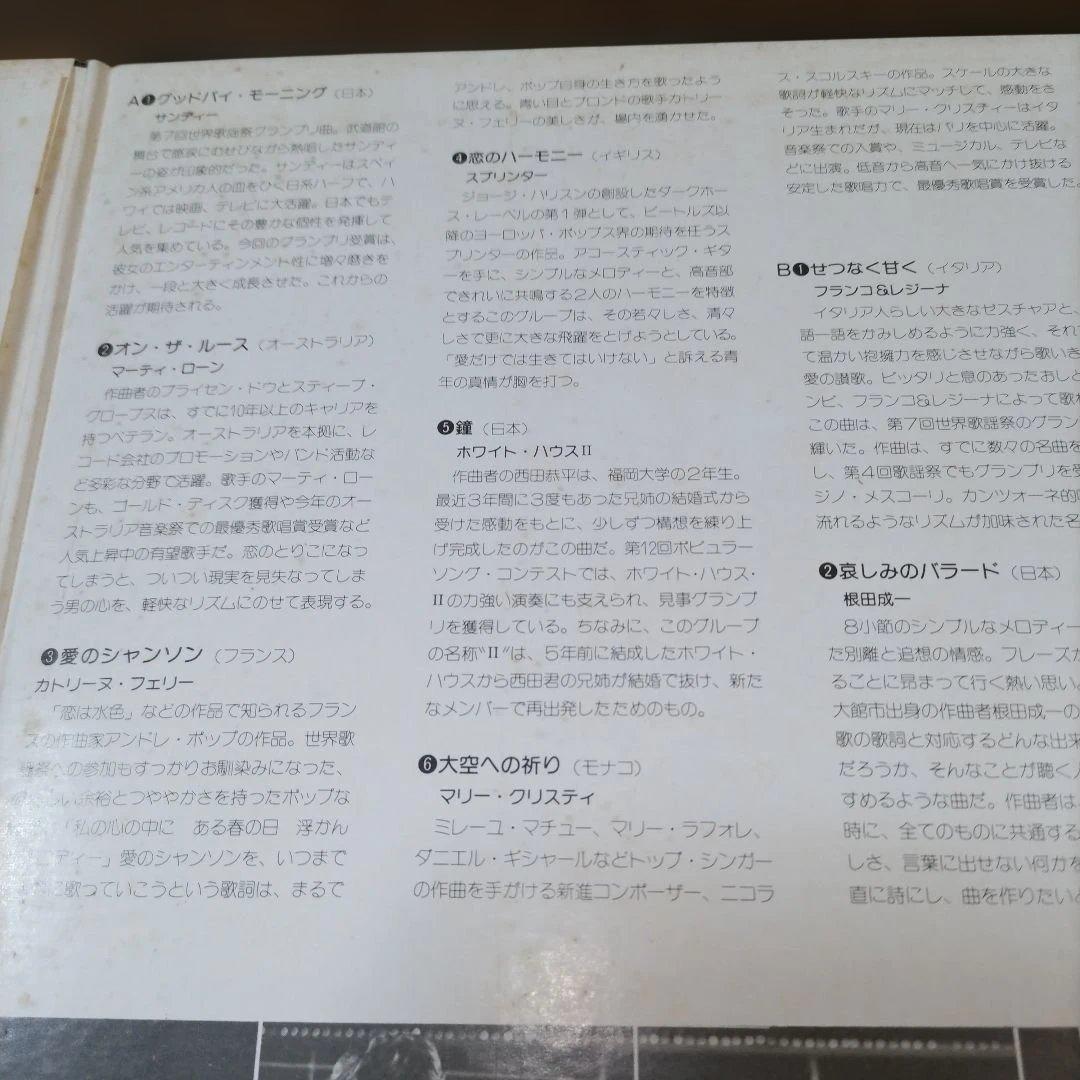 A❶グッドバイ・モーニング(日本)
サンディー
第7回世界歌謡祭グランプリ曲。武道館の
舞台で感涙にむせびながら熱唱したサンディ
ーの姿が印象的だった。サンディーはスペイ
ン系アメリカ人の血をひく日系ハーフで、ハ
ワイでは映画、テレビに大活躍。日本でもテ
レビ、レコードにその豊かな個性を発揮して
人気を集めている。今回のグランプリ受賞は、
彼女のエンターティンメント性に増々磨きを
かけ、一段と大きく成長させた。これからの
活躍が期待される。
❷オン・ザ・ルース(オーストラリア)
マーティ・ローン
作曲者のブライセン・ドウとスティーブ・
グローブスは、すでに10年以上のキャリアを
持つベテラン。オーストラリアを本拠に、レ
コード会社のプロモーションやバンド活動な
ど多彩な分野で活躍。歌手のマーティ・ロー
ンも、ゴールド・ディスク獲得や今年のオー
ストラリア音楽祭での最優秀歌唱賞受賞など
人気上昇中の有望歌手だ。恋のとりこになっ
てしまうと、ついつい現実を見失なってしま
う男の心を、軽快なリズムにのせて表現する。
❸愛のシャンソン(フランス)
カトリーヌ・フェリー
「恋は水色」などの作品で知られるフラン
スの作曲家アンドレ・ポップの作品。世界歌
謡祭への参加もすっかりお馴染みになった、
しい余裕とつややかさを持ったポップな
「私の心の中に ある春の日 浮かん
ディー」愛のシャンソンを、いつまで
に歌っていこうという歌詞は、まるで
アンドレ、ポップ自身の生き方を歌ったよう
に思える。青い目とブロンドの歌手カトリー
ヌ・フェリーの美しさが、場内を湧かせた。
❹恋のハーモニー(イギリス)
スプリンター
ジョージ・ハリスンの創設したダークホー
ス・レーベルの第1弾として、ビートルズ以
降のヨーロッパ・ポップス界の期待を任うス
プリンターの作品。アコースティック・ギタ
ーを手に、シンプルなメロディーと、高音部
できれいに共鳴する2人のハーモニーを特徴
とするこのグループは、その若々しさ、清々
しさで更に大きな飛躍をとげようとしている。
「愛だけでは生きてはいけない」と訴える青
年の真情が胸を打つ。
❺鐘(日本)
ホワイト・ハウスⅡ
作曲者の西田恭平は、福岡大学の2年生。
最近3年間に3度もあった兄姉の結婚式から
受けた感動をもとに、少しずつ構想を練り上
げ完成したのがこの曲だ。第12回ポピュラー
ソング・コンテストでは、ホワイト・ハウス・
Ⅱの力強い演奏にも支えられ、見事グランプ
リを獲得している。ちなみに、このグループ
の名称“Ⅱ”は、5年前に結成したホワイト・
ハウスから西田君の兄姉が結婚で抜け、新た
なメンバーで再出発したためのもの。
❻大空への祈り(モナコ)
マリー・クリスティ
ミレーユ・マチュー、マリー・ラフォレ、
ダニエル・ギシャールなどトップ・シンガー
の作曲を手がける新進コンポーザー、ニコラ
ス・スコルスキーの作品。スケールの大きな
歌詞が軽快なリズムにマッチして、感動をさ
そった。歌手のマリー・クリスティーはイタ
リア生まれだが、現在はパリを中心に活躍。
音楽祭での入賞や、ミュージカル、テレビな
どに出演。低音から高音へ一気にかけ抜ける
安定した歌唱力で、最優秀歌唱賞を受賞した。
B❶せつなく甘く(イタリア)
フランコ&レジーナ
イタリア人らしい大きなゼスチャアと、
語一語をかみしめるように力強く、それ
て温かい抱擁力を感じさせながら歌いき
愛の讃歌。ピッタリと息のあったおしど
ンビ、フランコ&レジーナによって歌わ
この曲は、第7回世界歌謡祭のグラン
輝いた。作曲は、すでに数々の名曲を
し、第4回歌謡祭でもグランプリを受
ジノ・メスコーリ。カンツォーネ的
流れるようなリズムが加味された名
❷哀しみのバラード(日本)
根田成一
8小節のシンプルなメロディー
た別離と追想の情感。フレーズが
るごとに昂まって行く熱い思い。
大館市出身の作曲者根田成一の
歌の歌詞と対応するどんな出来
だろうか、そんなことが聴く人
すめるような曲だ。作曲者は、
時に、全てのものに共通する
しさ、言葉に出せない何かを
直に詩にし、曲を作りたいと